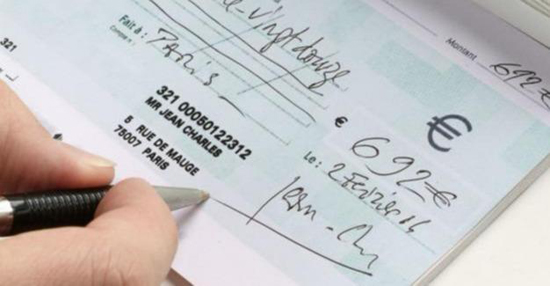 Montant 692€
321
-Vingt douze
Fait à : PARIS
Compte n° :
€
€ 692€
321 00050122312
MR JEAN CHARLES
5 RUE DE MAUGE
75007 PARIS
Le : 2 Février 16
Jean-Ch